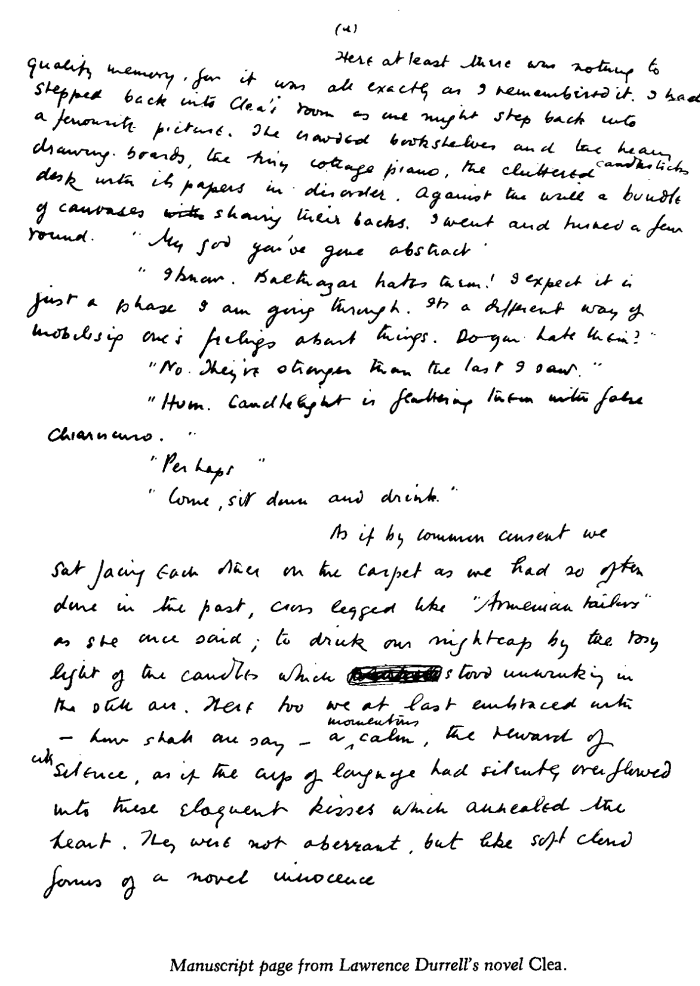 (4)
Here at least there was nothing to
qualify memory, for it was all exactly as I remembered it. I had
stepped back into Clea's room as one might step back into
a favourite picture. The crowded bookshelves and the heavy
drawing boards, the tiny cottage piano, the cluttered candlesticks
desk with its papers in disorder. Against the wall a bundle
of canvases with showing their backs. I went and turned a few
round. "My god you've gone abstract"
"I know. Balthazar hates them! I expect it is
just a phase I am going through. Its a different way of
mobilising one's feelings about things. Do you hate them?"
"No. They're stronger than the last I saw."
"Hum. Candlelight is flattering them with false
chiaroscuro."
"Perhaps"
"Come, sit down and drink."
As if by common consent we
sat facing each other on the carpet as we had so often
done in the past, cross legged like "Armenian tailors"
as she once said; to drink our nightcap by the rosy
light of the candles which stood unwinking in
the still air. Here too we at last embraced with
momentous
– how shall one say – a calm, the reward of
silence, as if the cup of language had silently overflowed
into these eloquent kisses which annealed the
heart. They were not aberrant, but like soft cloud
forms of a novel innocence
Manuscript page from Lawrence Durrell's novel Clea.